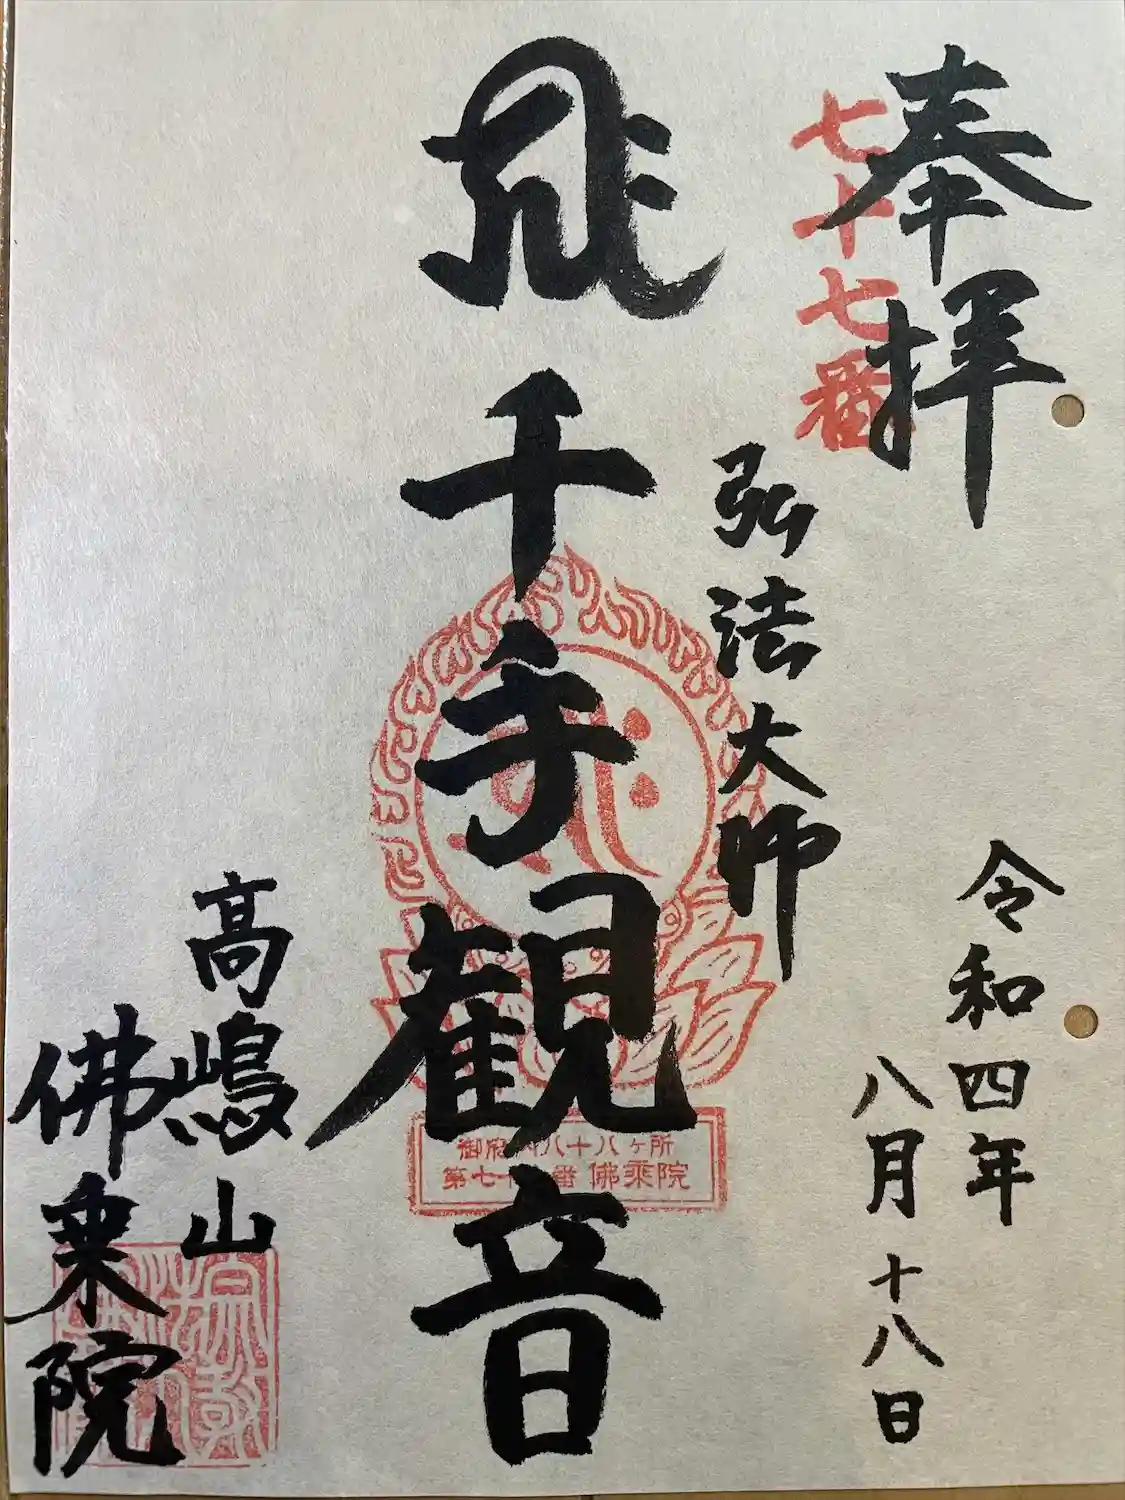 奉拝
七十七番
弘法大師
令和四年
八月十八日
千手観音
御府内八十八ヶ所
第七十七番 佛乘院
高嶋山
佛乗院